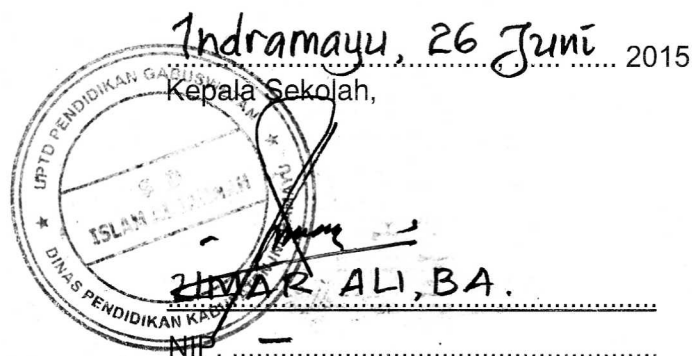 Indramayu, 26 Juni 2015
Kepala Sekolah,
UPTD PENDIDIKAN GABUSWETAN
SD
ISLAM
DINAS PENDIDIKAN
UMAR ALI, BA.
NIP. –